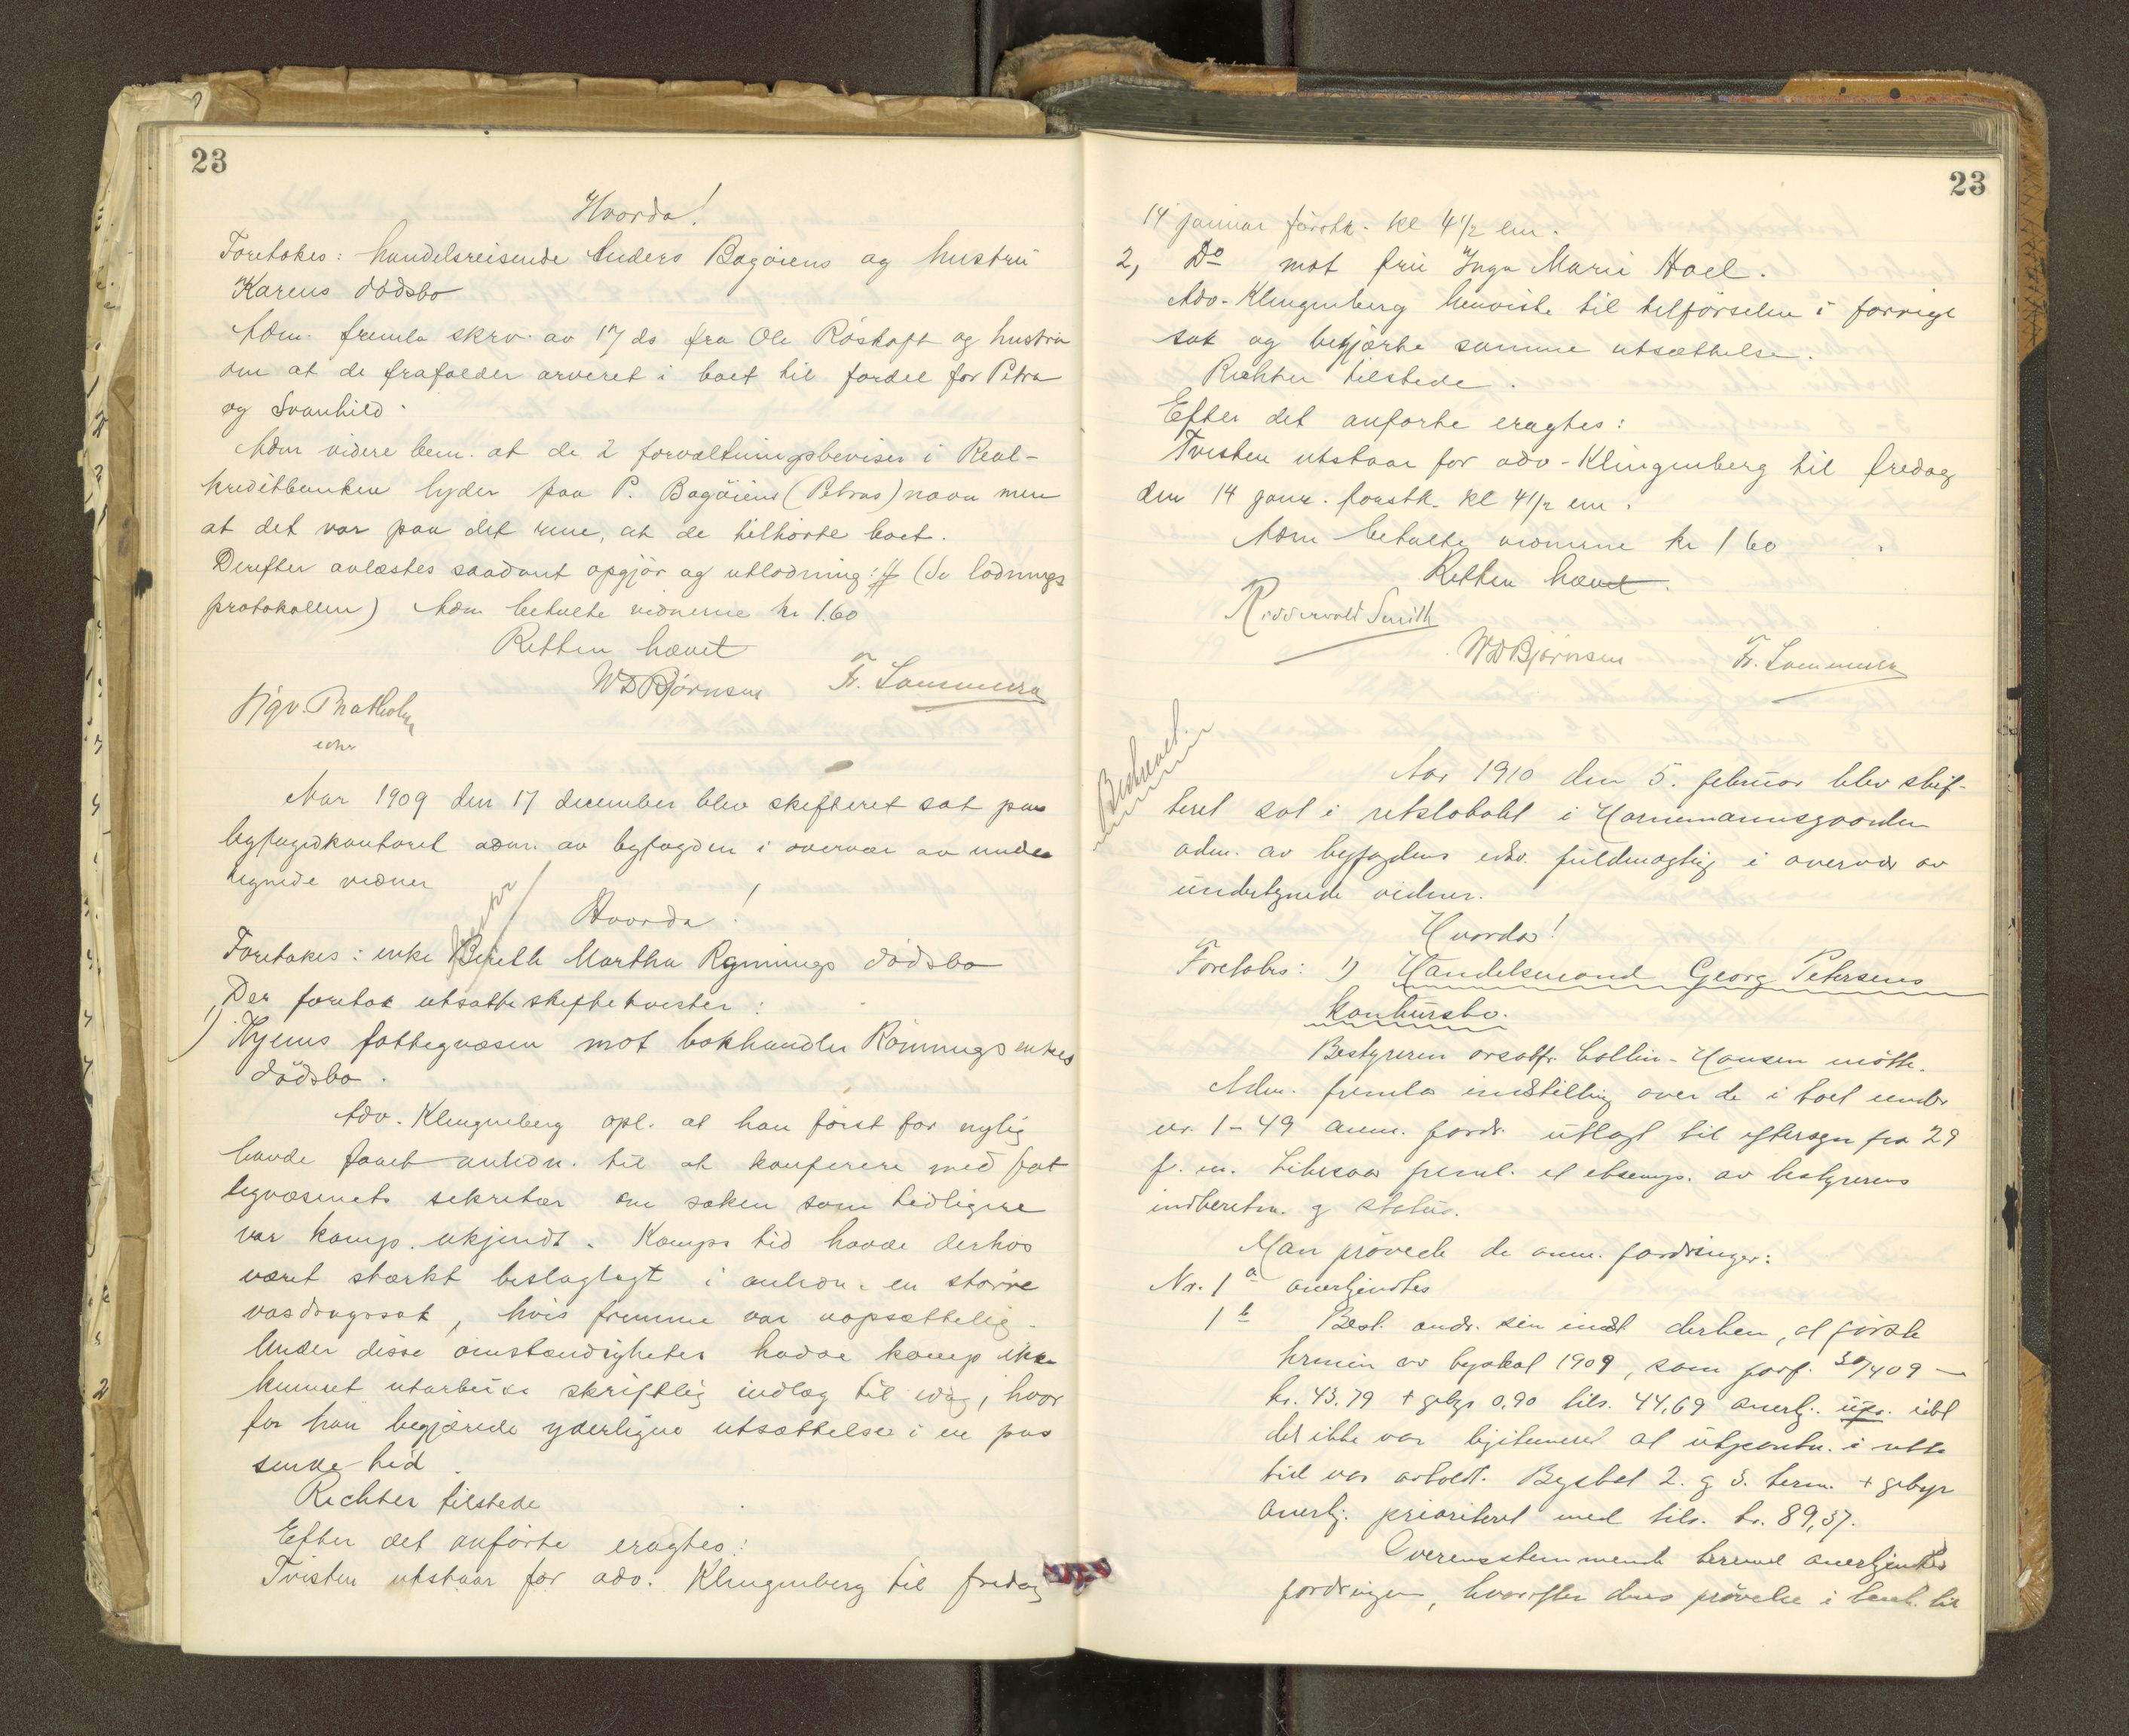 23
Hvorda!
Foretokes: handelsreisende Anders Bagøiens og hustru
Karens dødsbo
Adm. fremla skrv. av 17 ds fra Ole Röskaft og hustru
om at de frafalder arveret i boet til fordel for Petra
og Svanhild.
Adm videre bem. at de 2 forvaltningsbeviser i Real-
kreditbanken lyder paa P. Bagöiens (Petras) navn men
at det var paa det rene, at de tilhörte boet.
Derefter avlæstes saadant opgjör og utlodning: (Se lodnings
protokollen) Adm betalte vidnerne kr 1.60
Retten hævet
WDBjörnsen Fr. Lammers

Aar 1909 den 17 december blev skifteret sat paa
byfogdkontoret adm. av byfogden i overvær av under
tegnede vidner
Hvorda!
Foretakes: enke Bereth Martha Rønnings dødsbo
Der foretok utsatte skiftetvister:
1) Hjems fattigvæsen mot bokhandler Rönnings enkes
dödsbo.
Adv. Klingenberg opl. at han först for nylig
havde faaet anledn. til at konferere med fat
tigvæsenets sekretær om saken som tidligere
var komp. ukjendt. Komps tid havde derhos
været stærkt beslaglagt i anledn. en større
vasdragssak, hvis fremme var uopsættelig.
Under disse omstændigheter hadde komp ikke
kunnet utarbeide skriftlig indlæg til idag, hvor
for han begjærede yderligere utsættelse i en pas
sende tid.
Richter tilstede
Efter det anførte eragtes:
Tvisten utstaar for adv. Klingenberg til fredag
23
14 januar förstk. kl 4 1/2 em.
2, Do mot fru Inga Marie Hoel.
Adv. Klingenberg henviste til tilförselen i forrige
sak og begjærte samme utsættelse.
Richter tilstede.
Efter det anførte eragtes:
Tvisten utstaar for adv. Klingenberg til fredag
den 14 janr. førstk. kl 4 1/2 em.
Adm betalte vidnerne kr 1 60
Retten hævet.
Ridderwold Smith
WDBjörnsen Fr. Lammers
Aar 1910 den 5. februar blev skif-
teret sat i retslokalet i Hornemannsgaarden
adm. av byfogdens edsv. fuldmægtig i overvær av
undertegnede vidner.
Hvorda!
Foretokes: 1) Handelsmand Georg Petersens
konkursbo.
Bestyreren orsakfr. Collin-Hansen mötte.
Adm. fremla indstilling over de i boet under
nr. 1-49 anm. fordr. utlagt til eftersyn fra 29
f. m. Likesaa freml. et eksempl. av bestyrerens
indberetn. og status.
Man prövede de anm. fordringer:
Nr. 1a anerkjendtes
1b Best. andr. sin indst. derhen, at förste
termin av byskat 1909, som forf. 30/4 09 -
kr. 43.79 + gebyr 0,90 tils. 44,69 anerkj. upr. idet
det ikke var legitimeret at utpantn. i rette
tid var avholdt. Byskat 2. og 3. term. + gebyr
anerkj. prioriteret med tils. kr. 89,37.
Overensstemmende hermed anerkjendtes
fordringen, hvorefter dens prövelse i henh. til